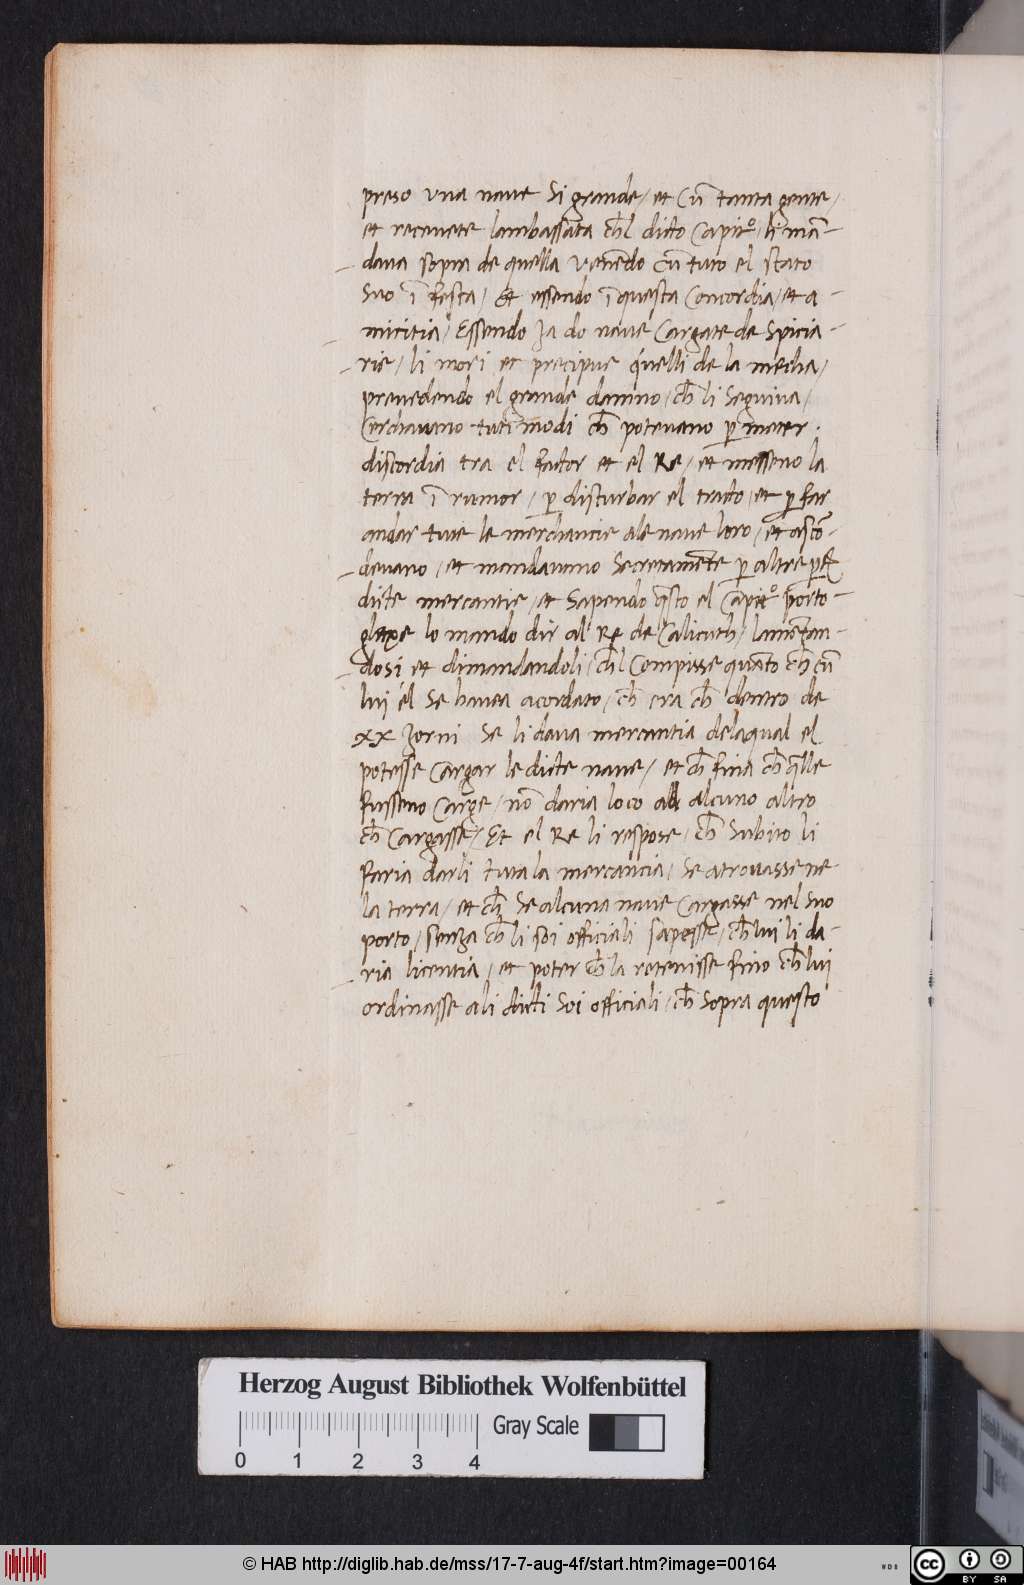 preso vna naue Si grande / et cũ tanta gente /
et receuete lambassata ch̄l dicto Capit° / li mā-
daua sopra de quella venẽdo cũ tuto el stato
suo ĩ festa / Et essendo ĩ questa Concordia / et a-
micitia / Essendo za do naue Cargate de Spicia-
rie / li mori et precipue quelli de la mecha /
preuedendo el grande damno / ch̄ li Seguiua /
Cerchauano tuti modi ch̄ poteuano p̱ meter
discordia tra el factor et el Re / et messeno la
terra ĩ rumor / p̱ disturbar el trato / et p̱ far
andar tute le merchancie ale naue loro / et ascō-
deuano / et mandauano Secretamẽte p̱ altre
dicte mercantie / et Sapendo q̄sto el Capit° porto-
glexe lo mando dir al Re de Calicuth / lamẽtan-
dosi et dimandandoli / ch̄l Compisse quāto ch̄ cũ
lui el Se hauea acordato / ch̄ era ch̄ dentro de
xx zorni Se li daua mercantia delaqual el
potesse Cargar le dicte naue / et ch̄ fina ch̄ q̄lle
fusseno Carge / nō daria loco alcuno altro
ch̄ Cargasse / Et el Re li respose / ch̄ Subito li
faria darli tuta la mercancia / Se atrouasse ne
la terra / et ch̄ Se alcuna naue Cargasse nel Suo
porto / senza ch̄ li soi officiali sapesse / ch̄ lui li da-
ria licentia / et poter ch̄ la retenisse fino ch̄ lui
ordinasse ali dicti Soi officiali / ch̄ Sopra questo
Herzog August Bibliothek Wolfenbüttel
Gray Scale
0 1 2 3 4
© HAB http://diglib.hab.de/mss/17-7-aug-4f/start.htm?image=00164
WDB
cc BY SA